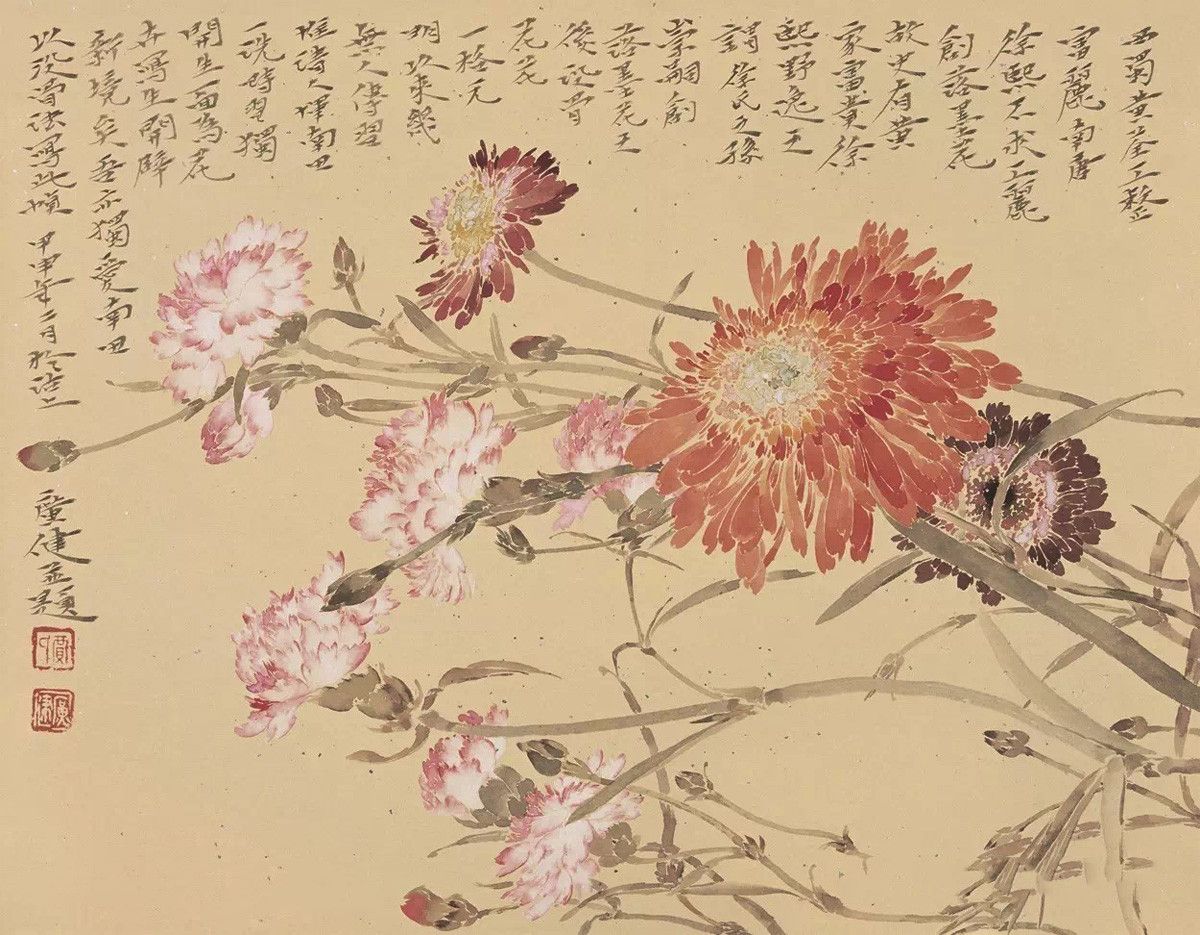 西蜀黄荃工整
富麗南唐
徐熙不求工麗
創落墨花
故史有黄
家富貴徐
熙野逸之
謂徐氏之孫
崇嗣創
落墨花之
後没骨
花
一格元
明以来幾
無人傳習
惟清人惲南田
一洗時習獨
開生面為花
卉寫生開闢
新境矣吾亦獨愛南田
以没骨法寫此幀 甲申年二月於
上
廣健並題
賈
廣健